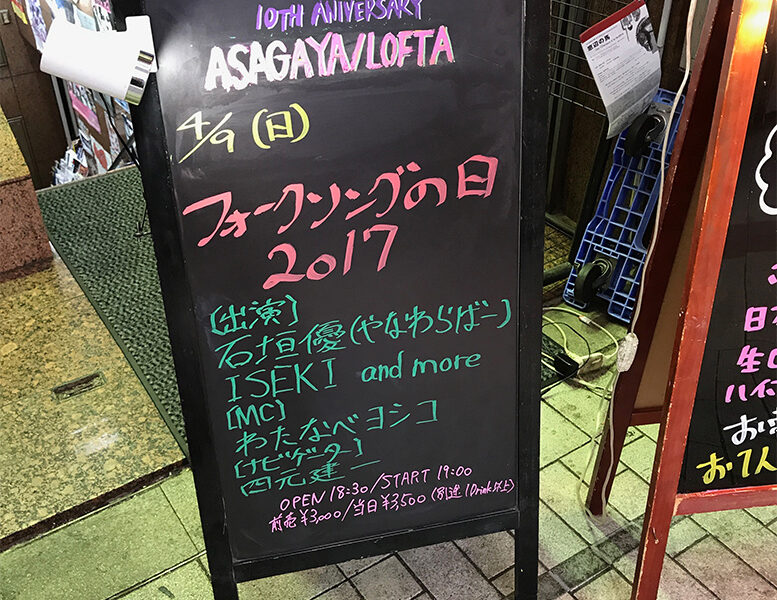 10TH ANIVERSARY
ASAGAYA/LOFTA
4/9(日)
フォークソングの日
2017
[出演]
石垣優(やなわらばー)
ISEKI and more
[MC]
わたなべヨシコ
[ナビゲーター]
四元建一
OPEN 18:30/START 19:00
前売¥3,000/当日¥3,500(別途1Drink以上)
生
ハイ
お
お1人